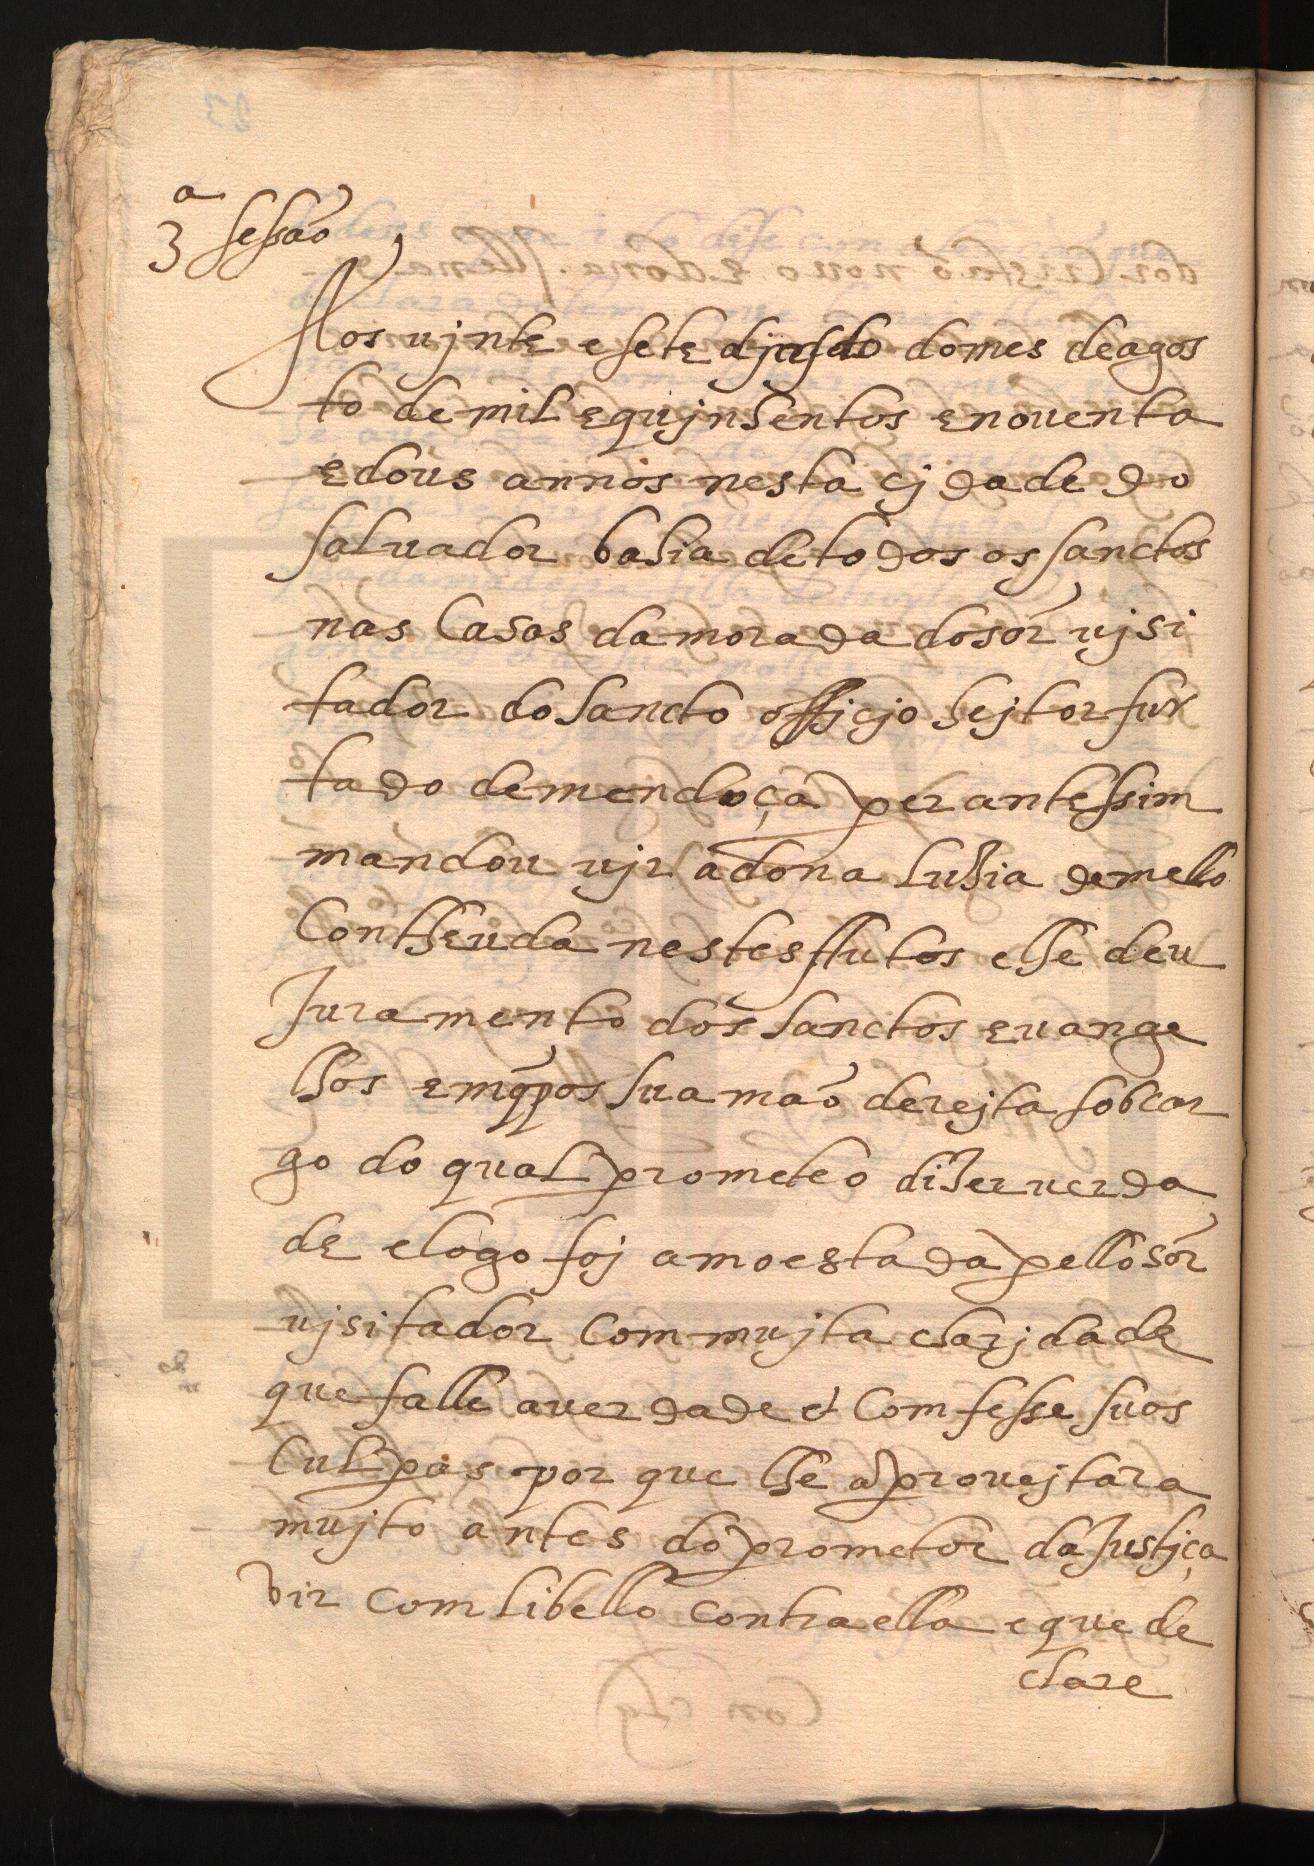 3ª sessaõ
Aos ujnte e sete djas do do mes de agos
to de mil e qujnhentos e nouenta
e dous annos nesta cjdade do
saluador bahia de todos os sanctos
nas Casas da morada do sõr ujsi
tador do sancto officjo hejtor fur
tado de mendoça perante ssim
mandou ujr a dona Luzia de mello
Contheuda nestes autos e lhe deu
Juramento dos sanctos euange
lhos em q̃ pos sua maõ derejta sob car
go do qual prometeo dizer uerda
de e logo foj amoestada pello sõr
ujsitador Com mujta charjdade
que falle a uerdade & Comfesse suas
Culpas por que lhe aprouejtara
mujto antes do prometor da Justiça
vir com libello contra ella e que de
clare